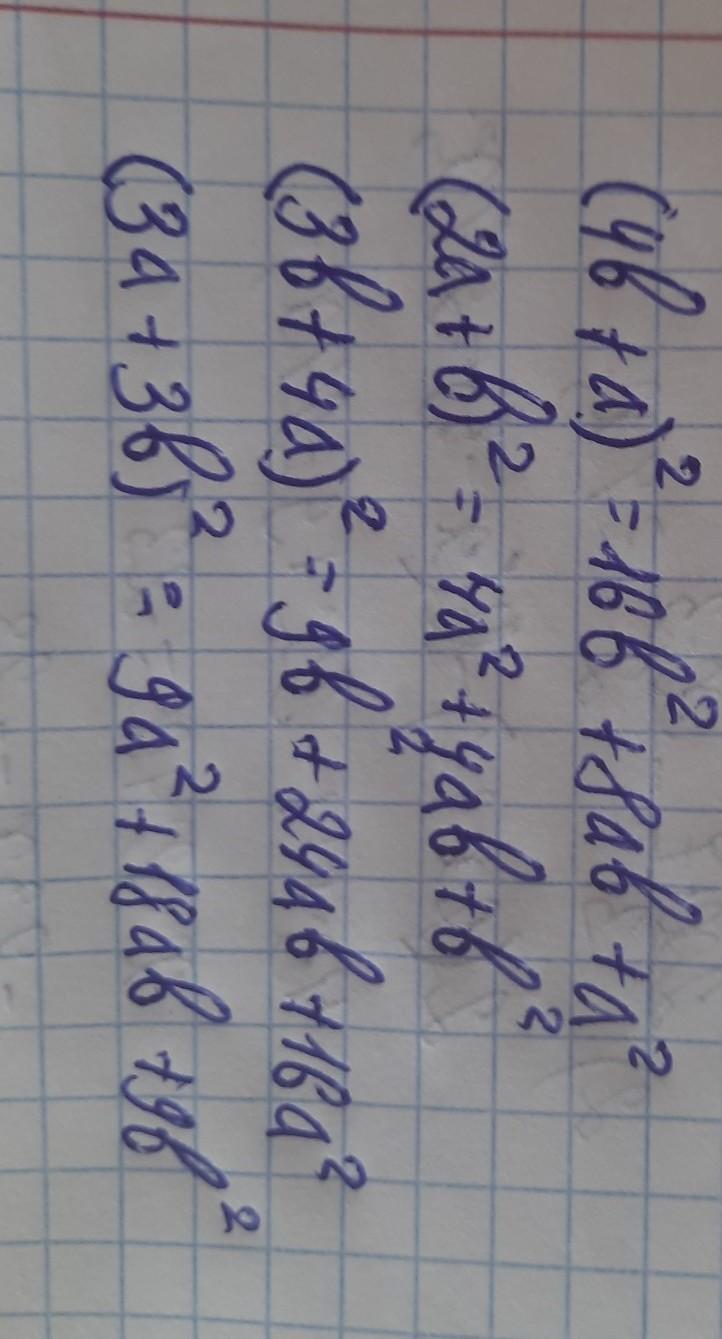 (4b + a)² = 16b² + 8ab + a²
(2a + b)² = 4a² + 4ab + b²
(3b + 4a)² = 9b² + 24ab + 16a²
(3a + 3b)² = 9a² + 18ab + 9b²